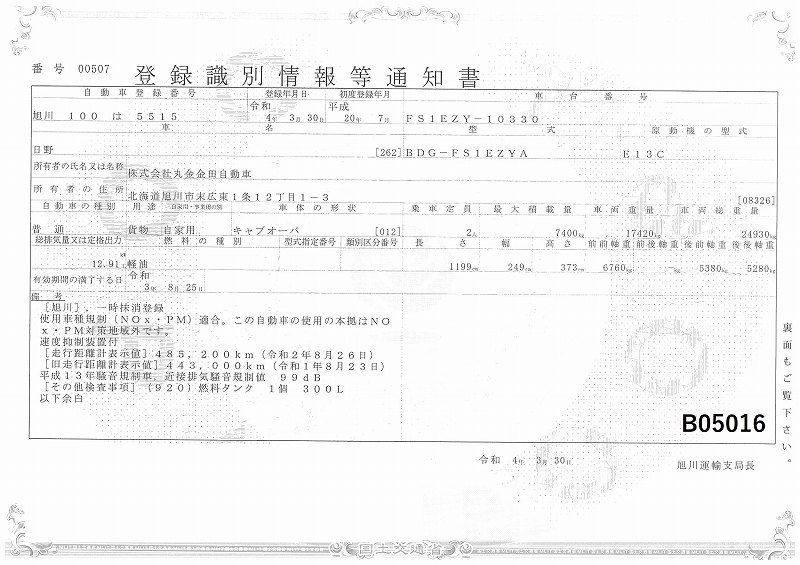 番号 00507 登録識別情報等通知書
自動車登録番号 登録年月日 初度登録年月 車台番号
旭川 100 は 5515 令和 4年 3月 30日 平成 20年 7月 FS1EZY-10330
車名 型式 原動機の型式
日野 [262] BDG-FS1EZYA E13C
所有者の氏名又は名称 株式会社丸金金田自動車
所有者の住所 北海道旭川市末広東1条12丁目1-3 [08326]
自動車の種別 用途 自家用・事業用の別 車体の形状 乗車定員 最大積載量 車両重量 車両総重量
普通 貨物 自家用 キャブオーバ [012] 2人 7400kg 17420kg 24930kg
総排気量又は定格出力 燃料の種別 型式指定番号 類別区分番号 長さ 幅 高さ 前前軸重 前後軸重 後前軸重 後後軸重
12.91 kw L 軽油 1199cm 249cm 373cm 6760kg -kg 5380kg 5280kg
有効期間の満了する日 令和 3年 8月 25日
備考
[旭川],一時抹消登録
使用車種規制(NOx・PM)適合。この自動車の使用の本拠はNO
x・PM対策地域外です。
速度抑制装置付
[走行距離計表示値]485,200km(令和2年8月26日)
[旧走行距離計表示値]443,000km(令和1年8月23日)
平成13年騒音規制車,近接排気騒音規制値 99dB
[その他検査事項](920)燃料タンク 1個 300L
以下余白
B05016
裏面もご覧下さい。
令和 4年 3月 30日 旭川運輸支局長
国土交通省